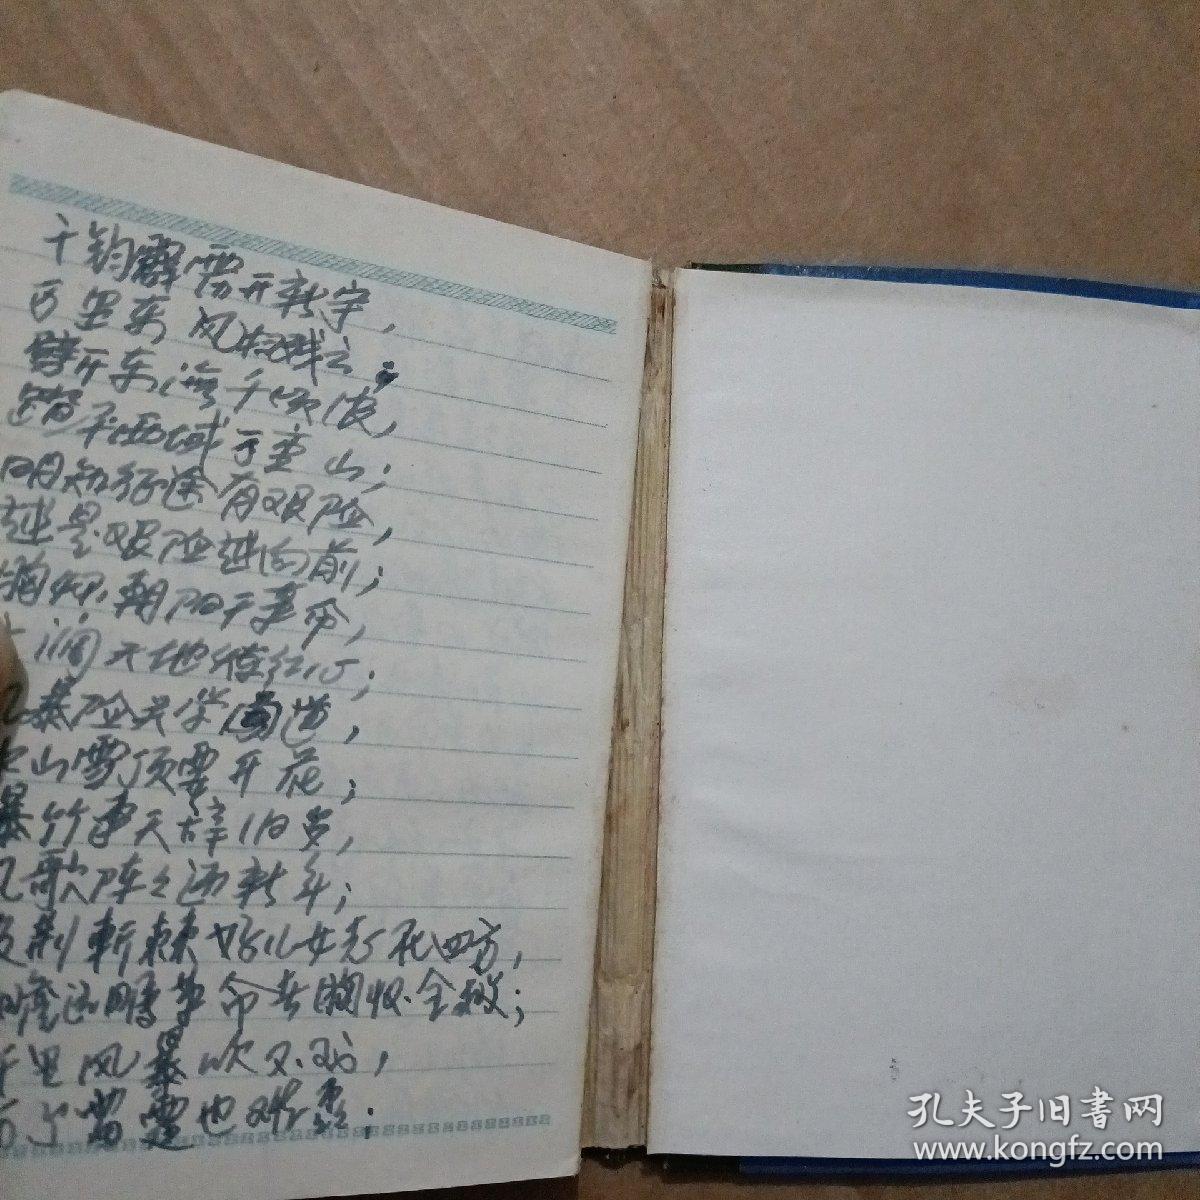 千钧霹雳开新宇,
万里东风扫残云;
劈开东海千顷浪,
踏平西域万重山;
明知征途有艰险,
越是艰险越向前;
胸怀朝阳干革命,
天地红心;
暴险
山雪顶要开花;
暴竹声天辞旧岁,
凯歌阵之迎新年;
荆斩棘好儿女志在四方,
革命者胸怀全球;
千里风暴吹不动,
万了雷霆也难轰;
孔夫子旧书网
www.kongfz.com